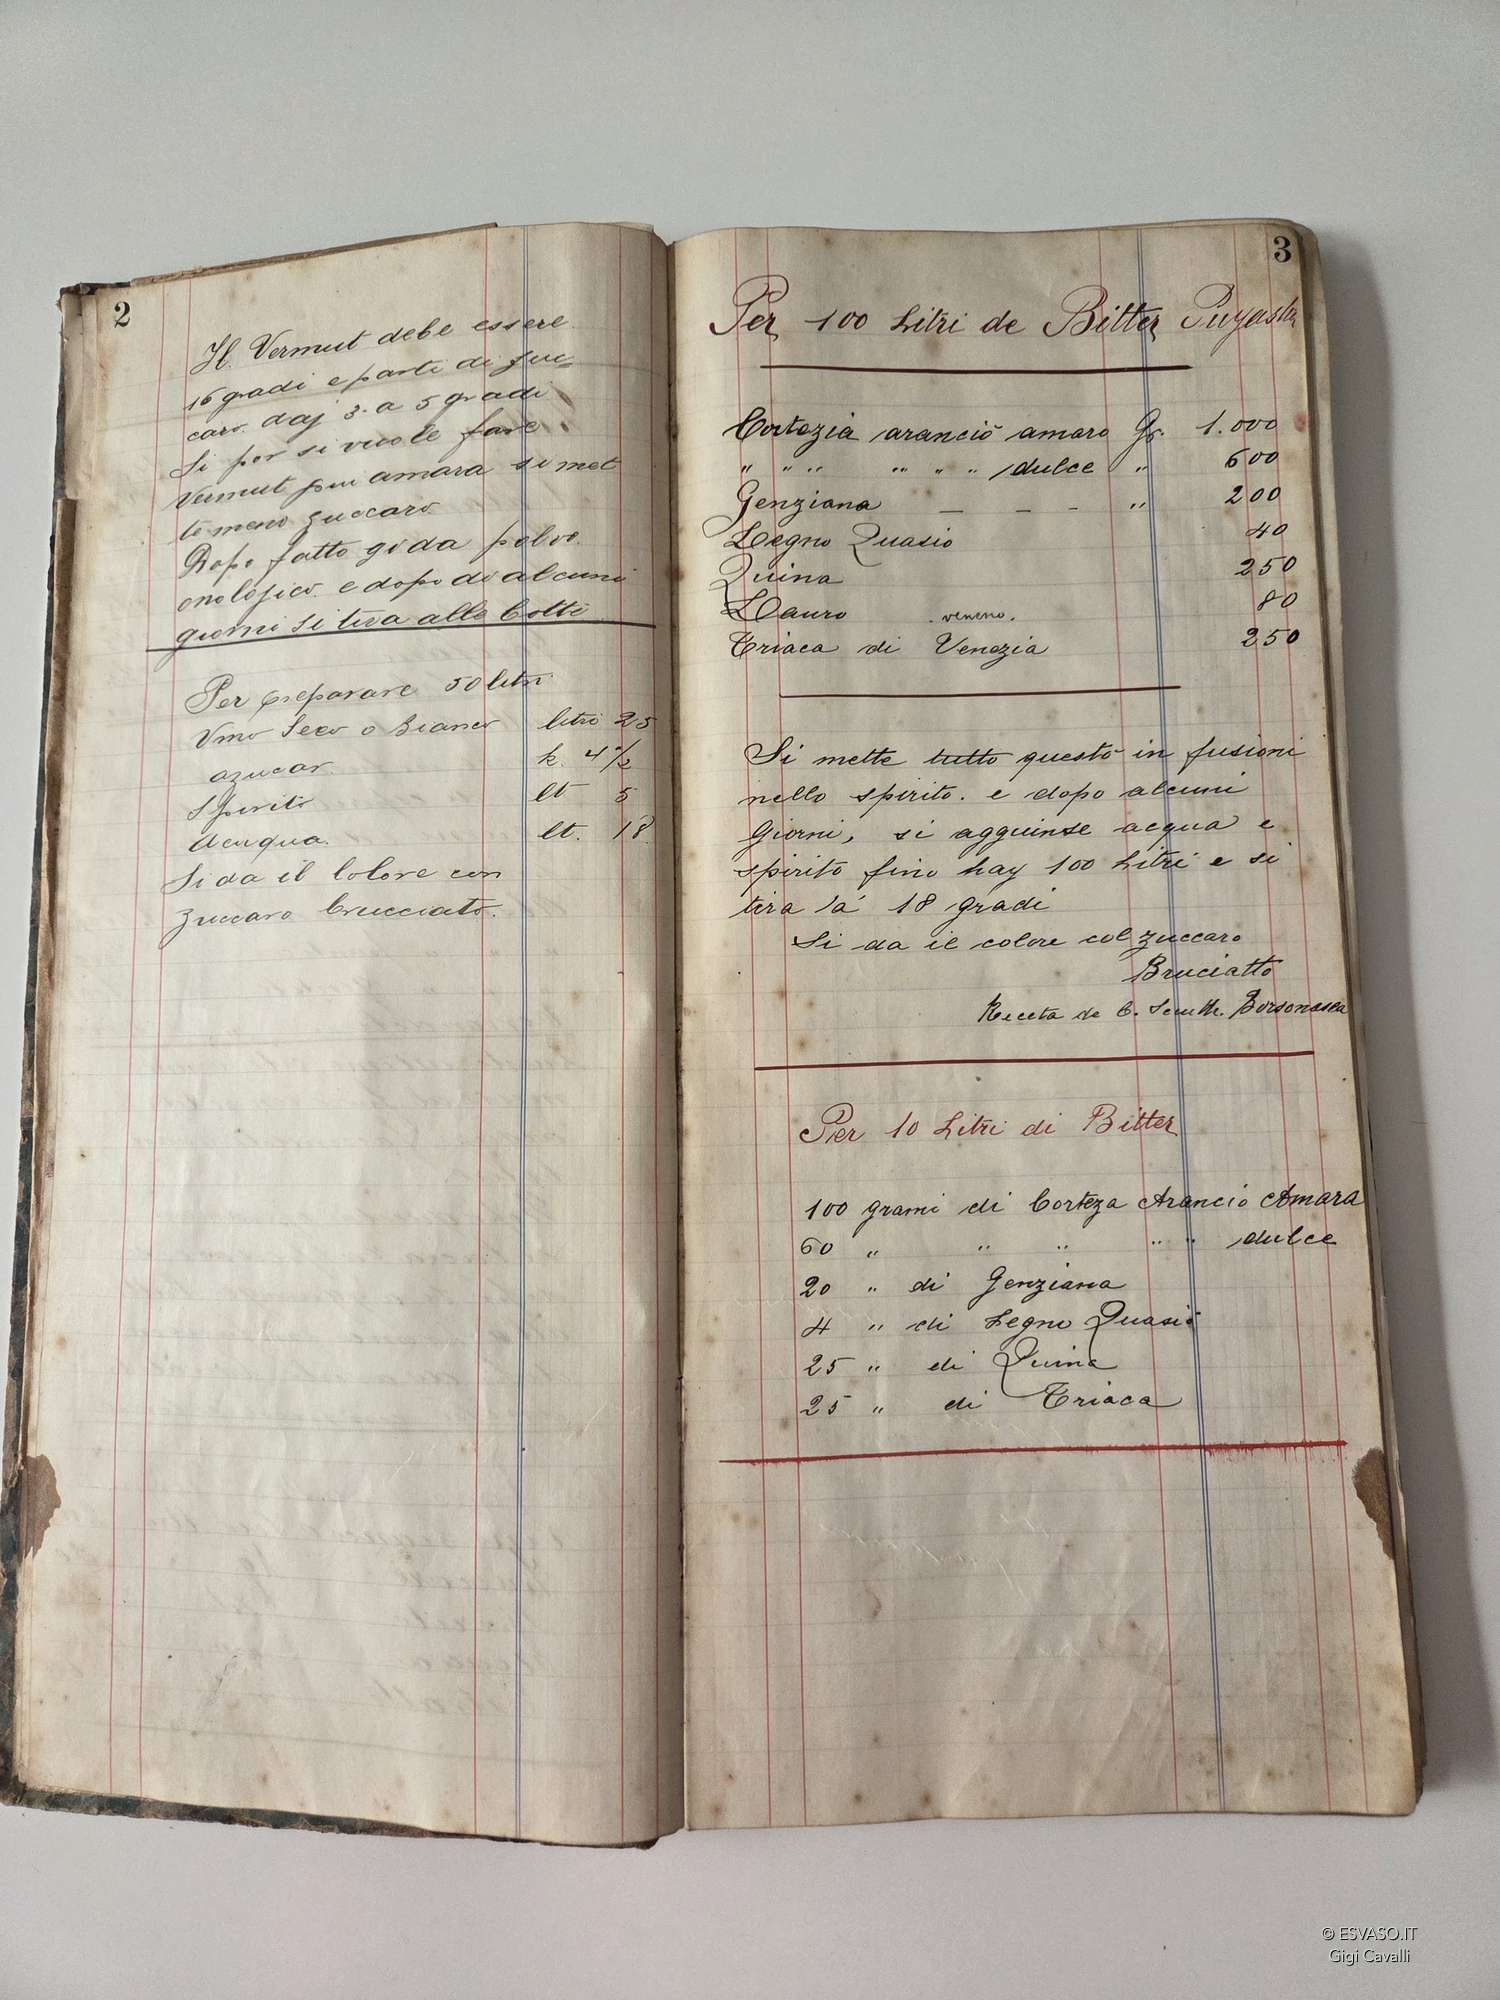 2
Il Vermut debe essere
16 gradi e parti di zuc=
caro daj 3. a 5 gradi
Si per si vuole fare
Vermut piu amara si met
te meno zuccaro
Dopo fatto gi da polvo.
onologico e dopo di alcuni
giorni si tira alle botti
Per preparare 50 litri
Vino Seco o Bianco litri 25
azucar. k. 4 1/2
Spirito lt 5
Acuqua. lt. 18
Si da il Colore con
Zuccaro Crucciato.
3
Per 100 Litri de Bitter
Cortezia arancio amaro Gr. 1.000
" " " " " " dulce " 600
Genziana — — — " 200
Legno Quasio 40
Quina 250
Lauro veneno. 80
Triaca di Venezia 250
Si mette tutto questo in fusioni
nello spirito. e dopo alcuni
Giorni, si agguinse acqua e
spirito fino hay 100 Litri e si
tira la 18 gradi
Si da il colore col zuccaro
Bruciatto
Receta de C. Borsonasca
Per 10 Litri di Bitter
100 grami di Corteza Arancio Amara
60 " " " " " dulce
20 " di Genziana
4 " di Legno Quasio
25 " di Quina
25 " di Triaca
© ESVASO.IT
Gigi Cavalli